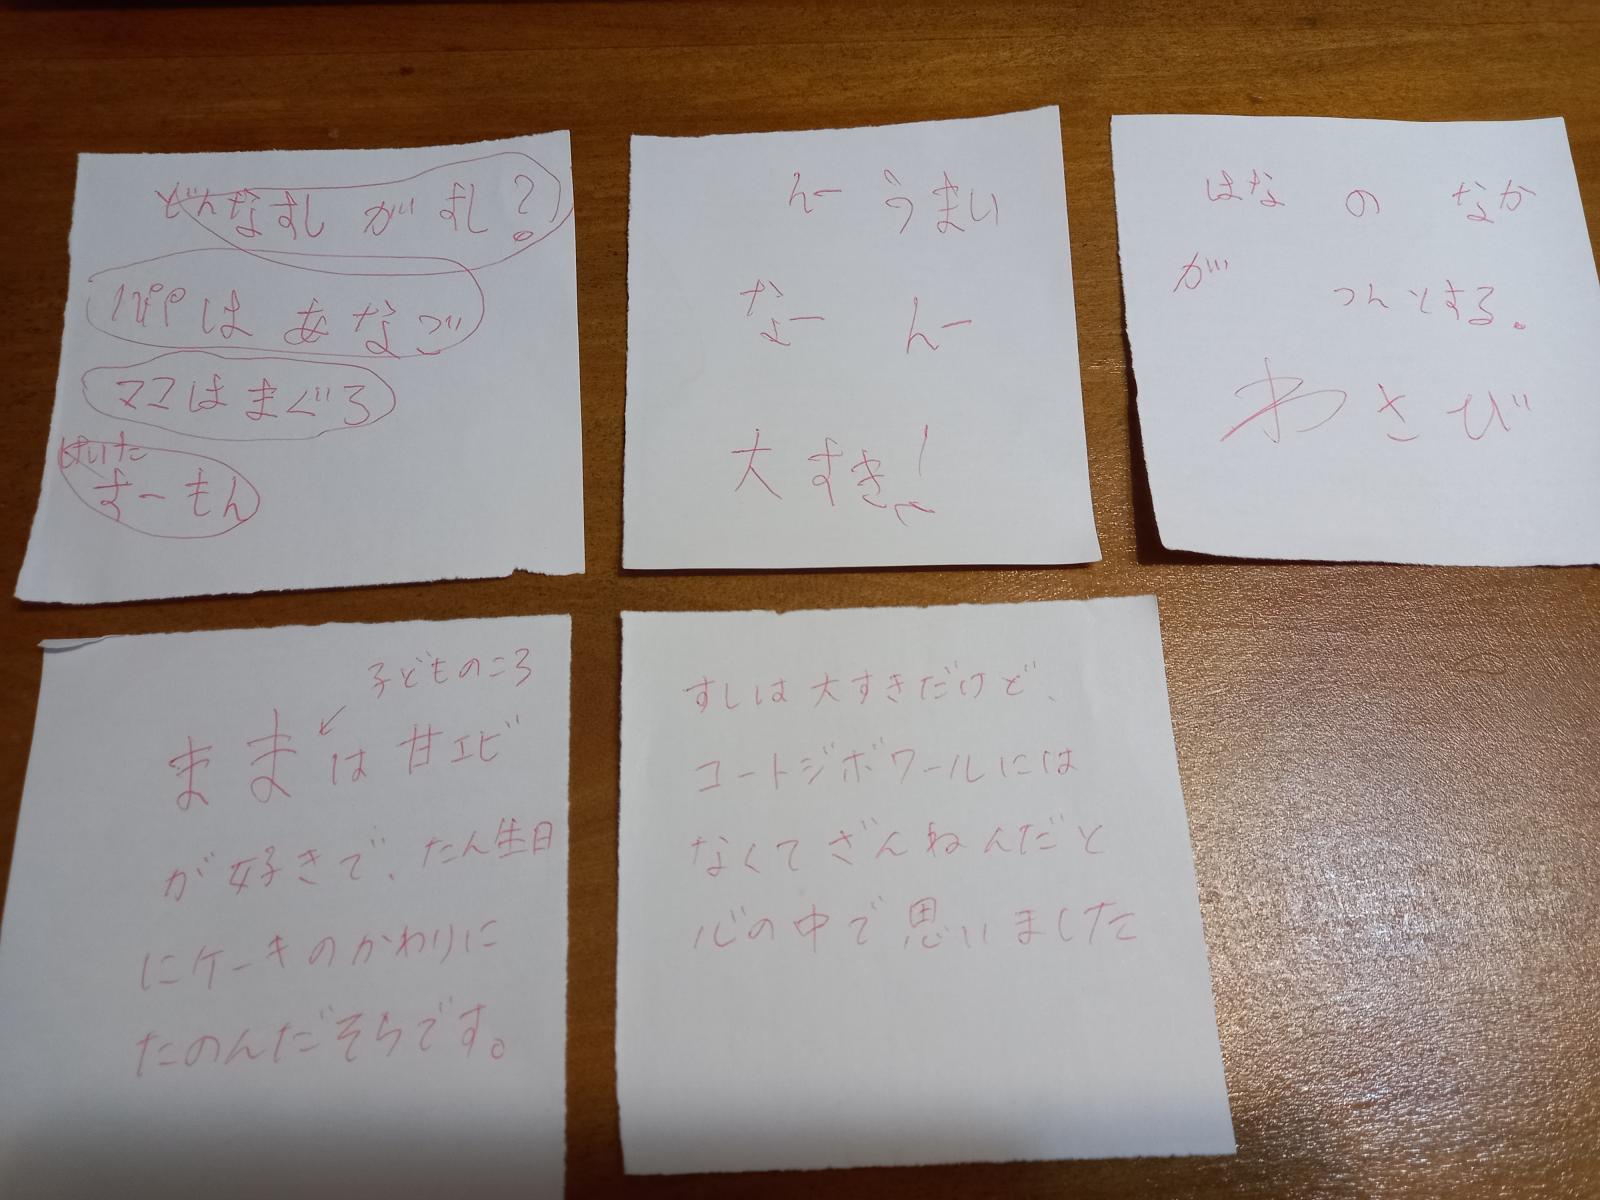 どんなすし がすし?
パパは あなご
ママはまぐろ
けいた
すーもん
んー うまい
なー んー
大すき!
はな の なか
が つんとする。
わさび
子どものころ
ままは甘エビ
が好きで、たん生日
にケーキのかわりに
たのんだそうです。
すしは大すきだけど、
コートジボワールには
なくてざんねんだと
心の中で思いました